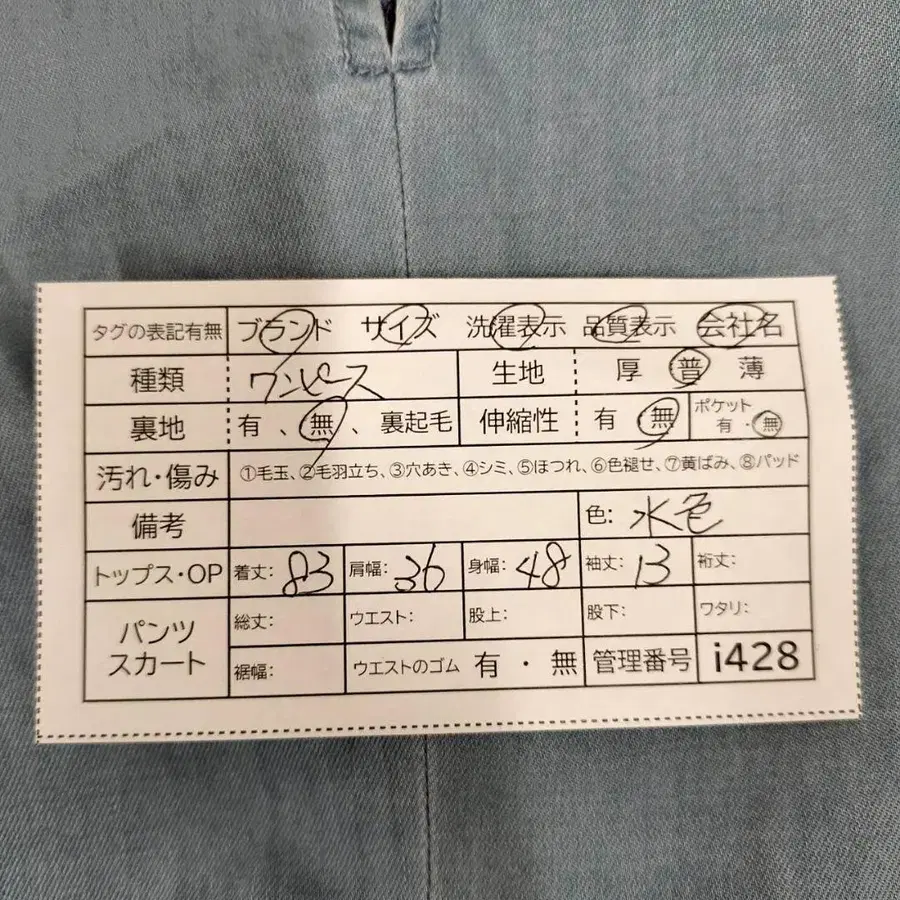 タグの表記有無 ブランド サイズ 洗濯表示 品質表示 会社名
種類 ワンピース 生地 厚 普 薄
裏地 有、無、裏起毛 伸縮性 有 無 ポケット 有・無
汚れ・傷み ①毛玉、②毛羽立ち、③穴あき、④シミ、⑤ほつれ、⑥色褪せ、⑦黄ばみ、⑧パッド
備考 色: 水色
トップス・OP 着丈: 83 肩幅: 36 身幅: 48 袖丈: 13 裄丈:
パンツ スカート 総丈: ウエスト: 股上: 股下: ワタリ:
裾幅: ウエストのゴム 有・無 管理番号 i428